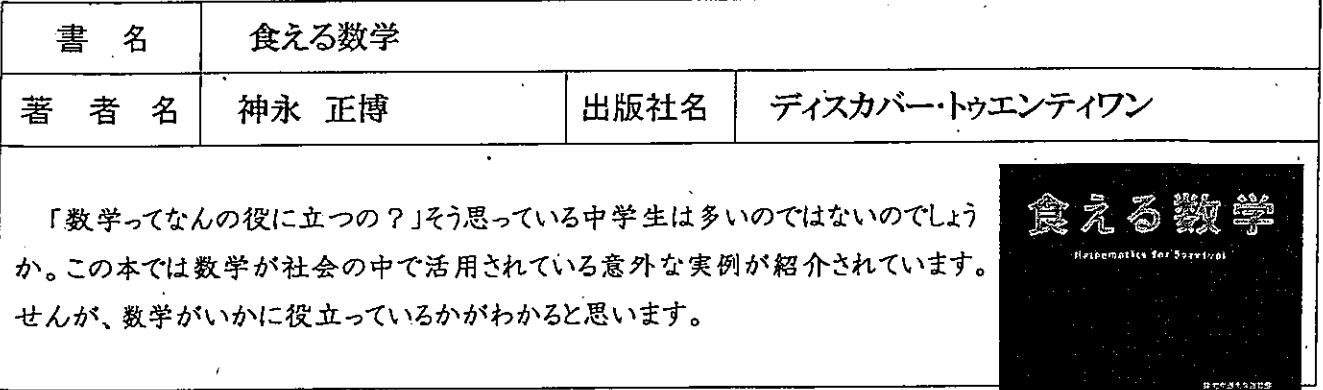 書 名 食える数学
著 者 名 神永 正博 出版社名 ディスカバー・トゥエンティワン
「数学ってなんの役に立つの？」そう思っている中学生は多いのではないのでしょう
か。この本では数学が社会の中で活用されている意外な実例が紹介されています。
せんが、数学がいかに役立っているかがわかると思います。
食える数学
Mathematics for Survival